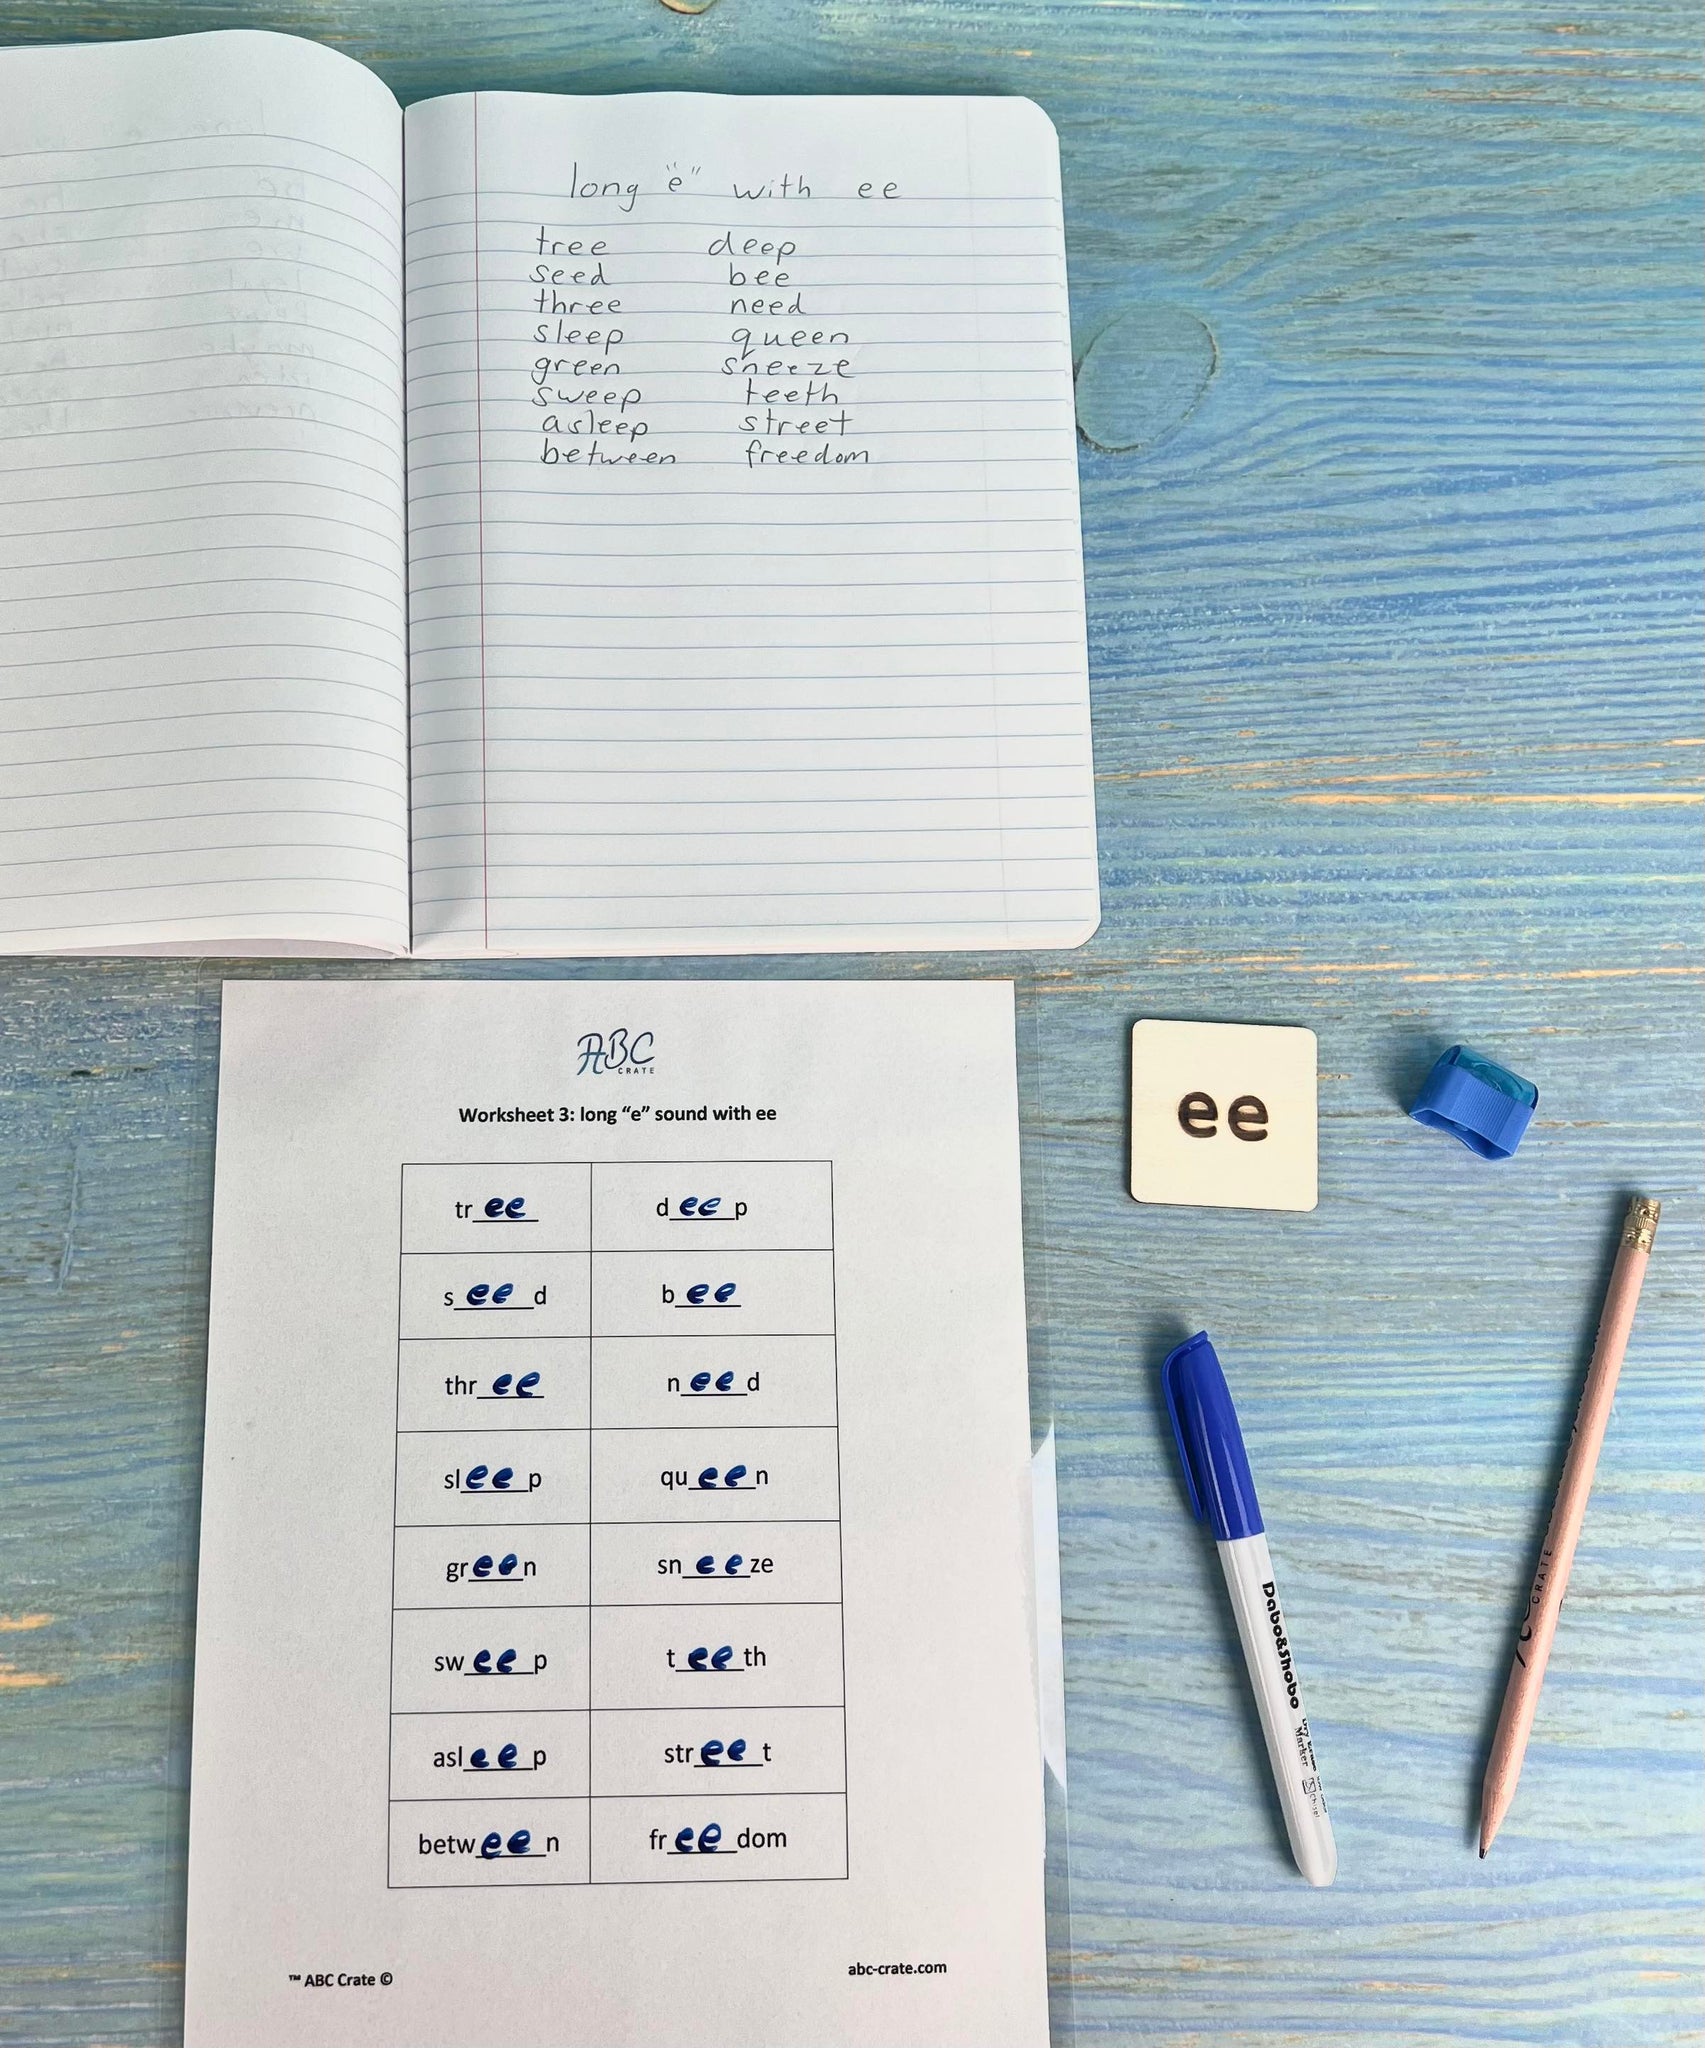 long "e" with ee
tree deep
seed bee
three need
sleep queen
green sneeze
sweep teeth
asleep street
between freedom
ABC
CRATE
Worksheet 3: long “e” sound with ee
tree deep
seed bee
three need
sleep queen
green sneeze
sweep teeth
asleep street
between freedom
™ ABC Crate © abc-crate.com
ee
Dabo&Shobo
Dry Erase
Marker
Chisel
CRATE